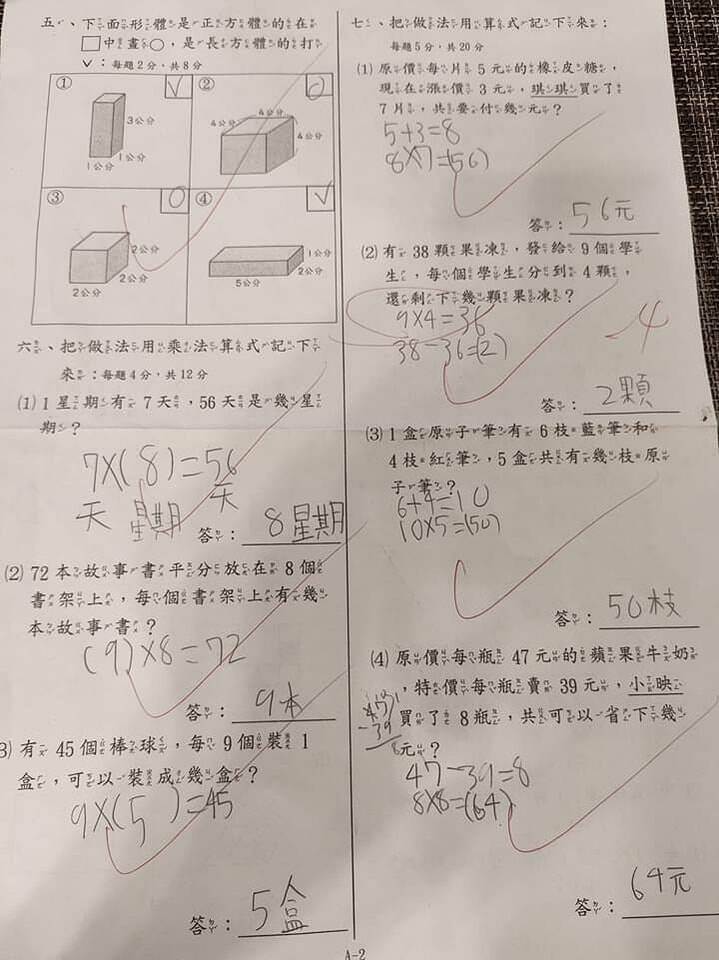 五、下面形體是正方體的在
□中畫○，是長方體的打
✓：每題2分，共8分
① ✓
3公分
1公分
1公分
② ○
4公分
4公分
4公分
③ ○
2公分
2公分
2公分
④ ✓
1公分
2公分
5公分
六、把做法用乘法算式記下
來：每題4分，共12分
(1) 1星期有7天，56天是幾星
期？
7×(8)=56
天 星期 天
答：8星期
(2) 72本故事書平分放在8個
書架上，每個書架上有幾
本故事書？
(9)×8=72
答：9本
3) 有45個棒球，每9個裝1
盒，可以裝成幾盒？
9×(5)=45
答：5盒
七、把做法用算式記下來：
每題5分，共20分
(1) 原價每片5元的橡皮糖，
現在漲價3元，琪琪買了
7片，共要付幾元？
5+3=8
8×7=(56)
答：56元
(2) 有38顆果凍，發給9個學
生，每個學生分到4顆，
還剩下幾顆果凍？
9×4=36
38-36=(2)
-4
答：2顆
(3) 1盒原子筆有6枝藍筆和
4枝紅筆，5盒共有幾枝原
子筆？
6+4=10
10×5=(50)
答：50枝
(4) 原價每瓶47元的蘋果牛奶
，特價每瓶賣39元，小映
買了8瓶，共可以省下幾
元？
-39
8
47-39=8
8×8=(64)
答：64元
A-2